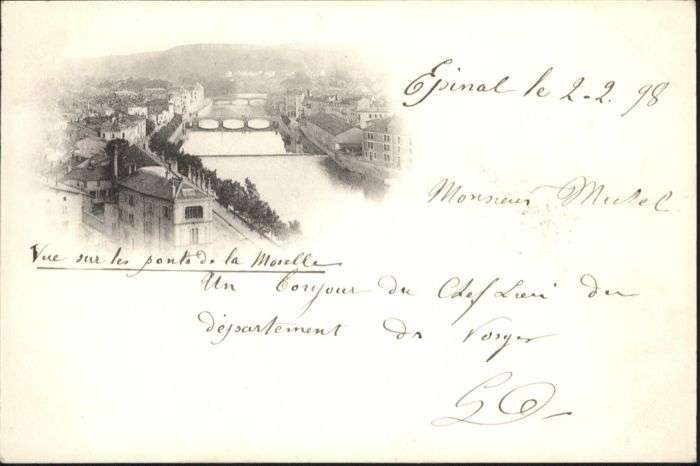 Epinal le 2-2. 98
Monsieur Michel
Vue sur les ponts de la Moselle
Un bonjour du Chef Lieu du
département des Vosges